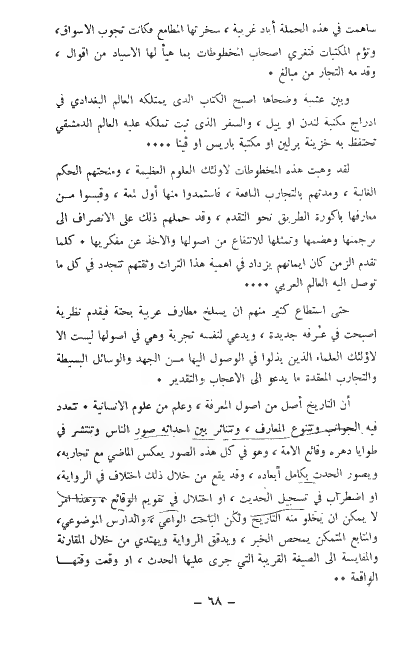 ساهمت في هذه الحملة أياد غريبة ، سخرتها المطامع فكانت تجوب الاسواق،
وتؤم المكتبات فتغري اصحاب المخطوطات بما هيأ لها الاسياد من اقوال ،
وقدمه التجار من مبالغ •
وبين عشية وضحاها اصبح الكتاب الذى يمتلكه العالم البغدادي في
ادراج مكتبة لندن او ييل ، والسفر الذى ثبت تملكه عليه العالم الدمشقي
تحتفظ به خزينة برلين او مكتبة باريس او ڤينا ••••
لقد وهبت هذه المخطوطات لاولئك العلوم العظيمة ، ومنحتهم الحكم
الغالية ، ومدتهم بالتجارب النافعة ، فاستمدوا منها أول لمعة ، وقبسوا مــن
معارفها باكورة الطريق نحو التقدم ، وقد حملهم ذلك على الانصراف الى
ترجمتها وهضمها وتمثلها للانتفاع من اصولها والاخذ عن مفكريها • كلما
تقدم الزمن كان ايمانهم يزداد في اهمية هذا التراث وثقتهم تتجدد في كل ما
توصل اليه العالم العربي ••••
حتى استطاع كثير منهم ان يسلخ مطارف عربية بحتة فيقدم نظرية
اصبحت في عُرفه جديدة ، ويدعي لنفسه تجربة وهي في اصولها ليست الا
لاؤلئك العلماء الذين بذلوا في الوصول اليها مــن الجهد والوسائل البسيطة
والتجارب المعقدة ما يدعو الى الاعجاب والتقدير •
أن التاريخ أصل من اصول المعرفة ، وعلم من علوم الانسانية • تتعدد
فيه الجوانب وتتنوع المعارف ، وتتناثر بين احداثه صور الناس وتنتشر في
طوايا دهره وقائع الامة ، وهو في كل هذه الصور يعكس الماضي مع تجاربه،
ويصور الحدث بكامل أبعاده ، وقد يقع من خلال ذلك اختلاف في الرواية،
او اضطرآب في تسجيل الحديث ، او اختلال في تقويم الوقائع ، وهذا امر
لا يمكن ان يخلو منه التاريخ ولكن الباحث الواعي ، والدارس الموضوعي،
والمتابع المتمكن يمحص الخبر ، ويدقق الرواية ويهتدي من خلال المقارنة
والمقايسة الى الصيغة القريبة التي جرى عليها الحدث ، او وقعت وفقهــا
الواقعة ••
– ٦٨ –